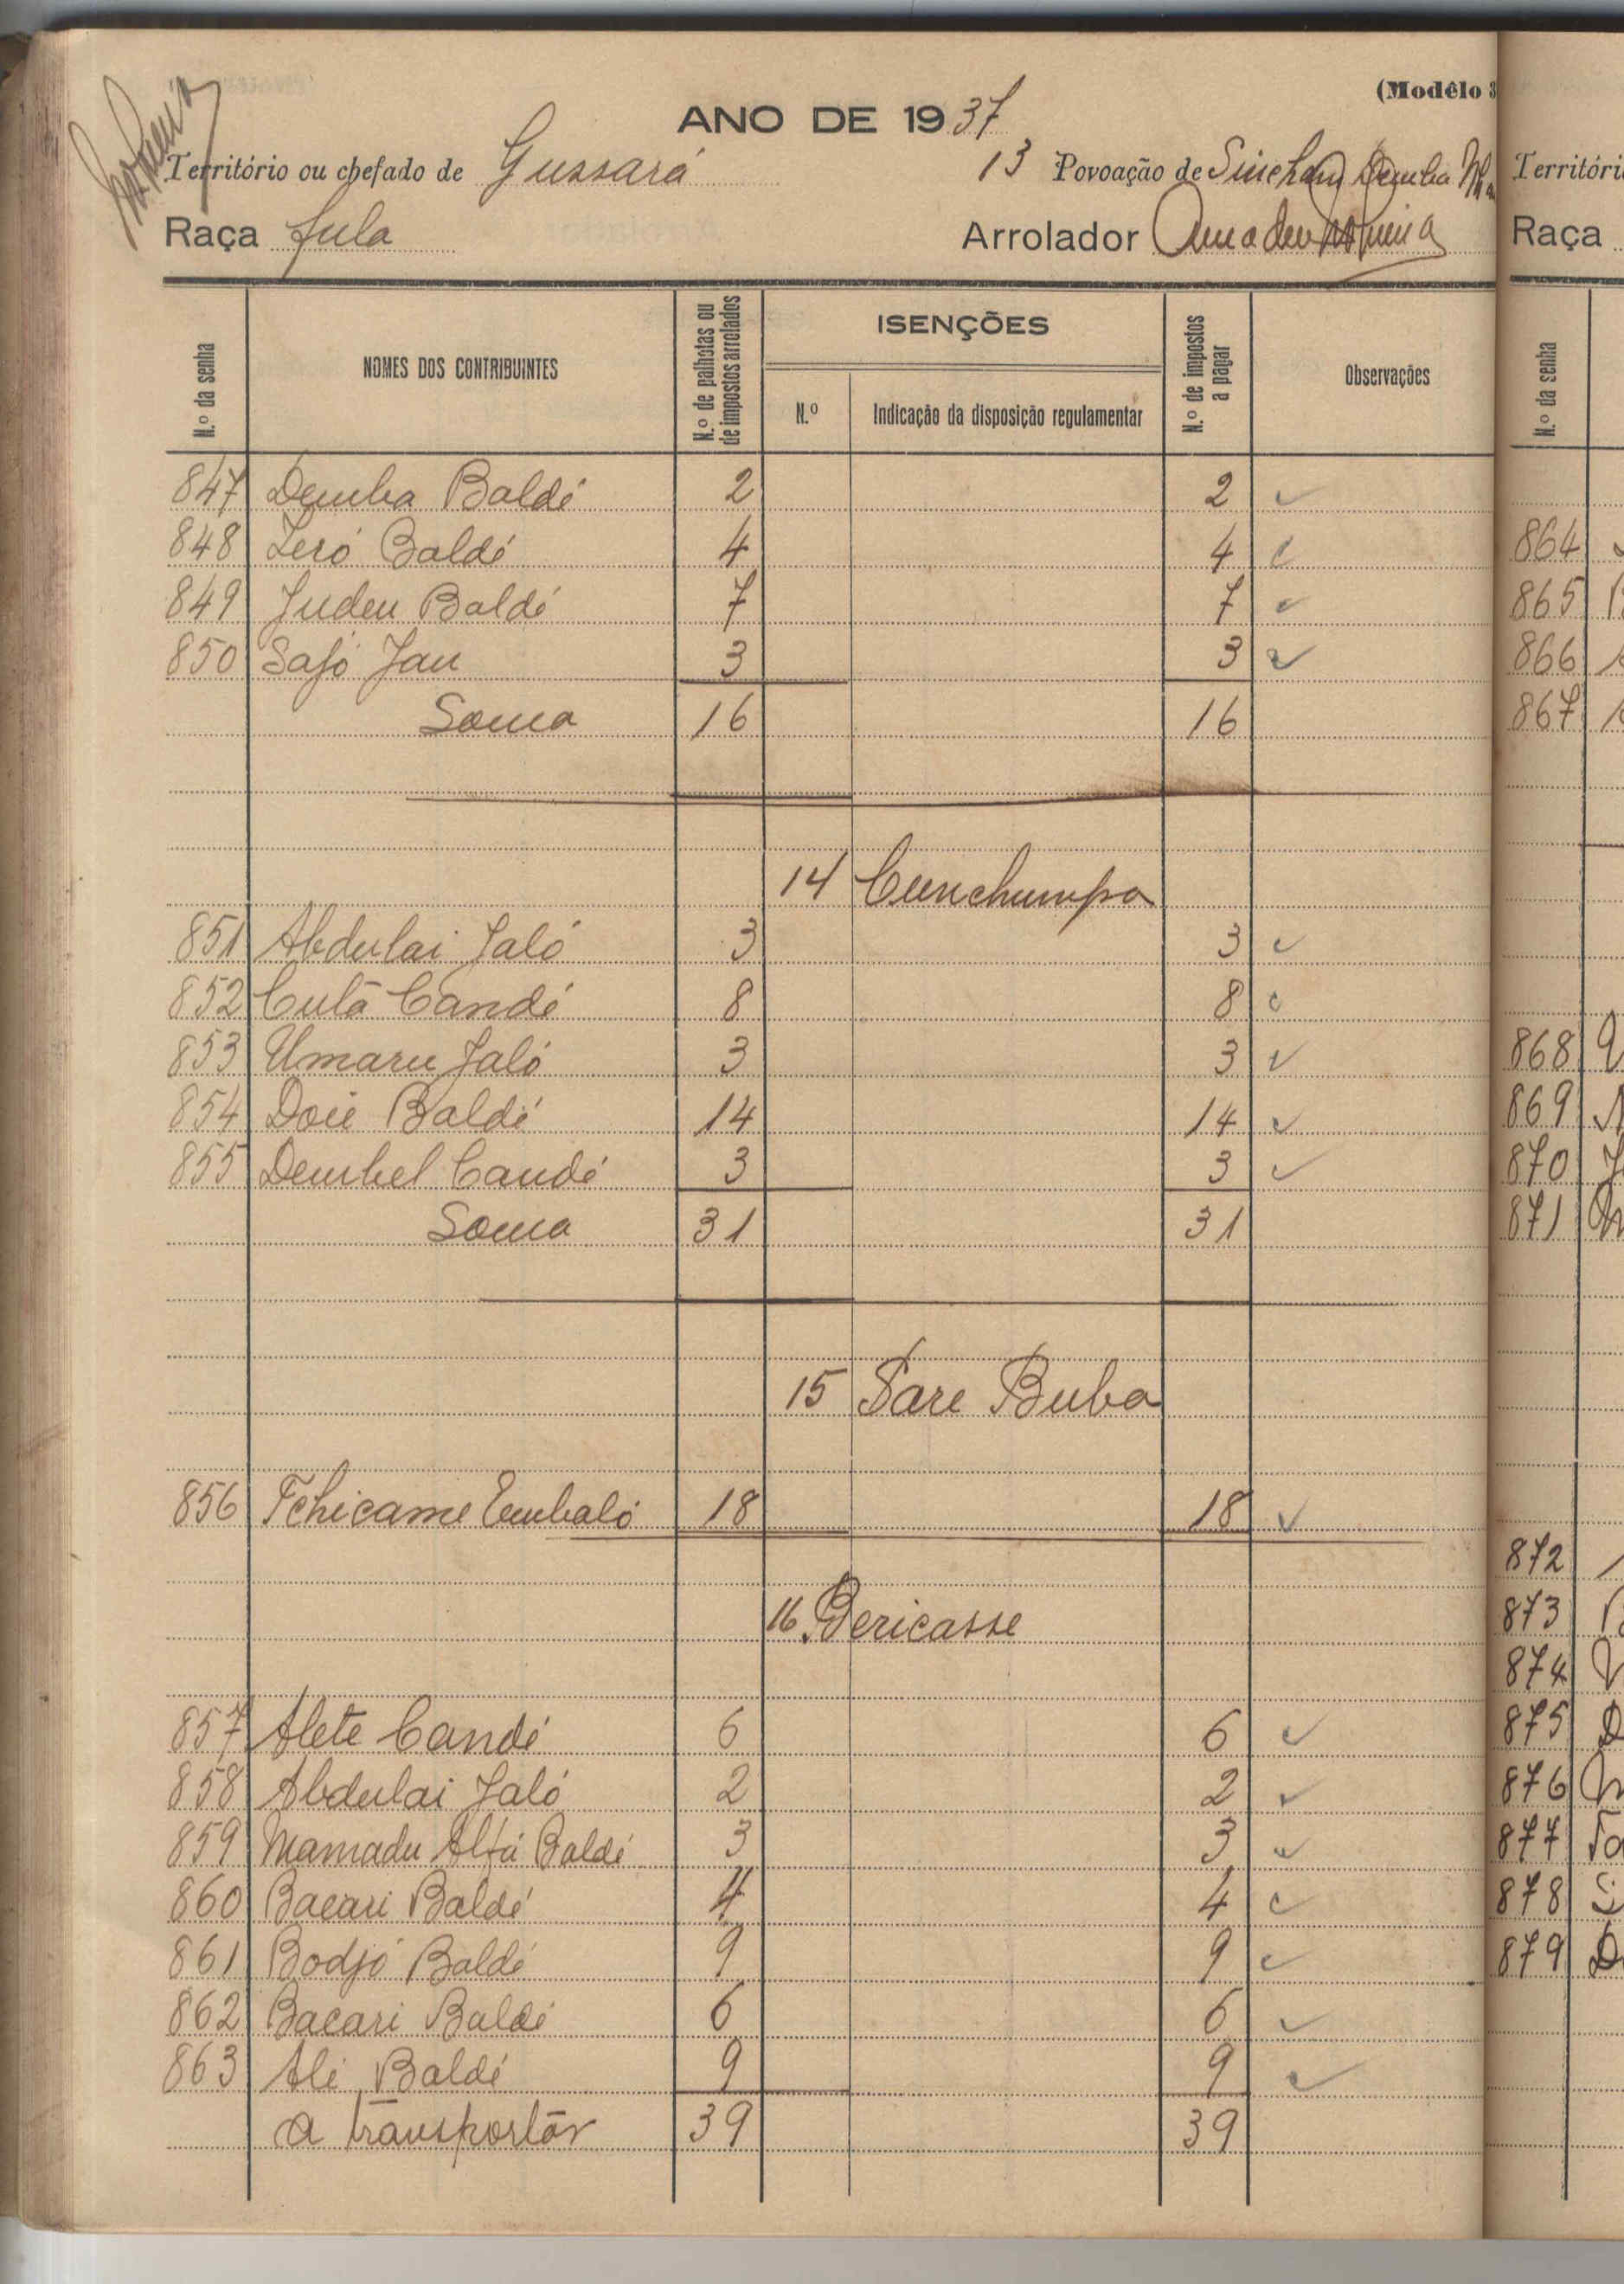 (Modêlo 3
ANO DE 1937
Território ou chefado de Gussará 13 Povoação de Sincham Demba
Raça fula Arrolador Amadeu
N.º da senha NOMES DOS CONTRIBUINTES N.º de palhotas ou de impostos arrolados ISENÇÕES N.º Indicação da disposição regulamentar N.º de impostos a pagar Observações
847 Demba Baldé 2 2
848 Leró Baldé 4 4
849 Judeu Baldé 7 7
850 Sajó Jau 3 3
Soma 16 16
14 Cunchumpa
851 Abdulai Jaló 3 3
852 Cutã Candé 8 8
853 Umaru Jaló 3 3
854 Doie Baldé 14 14
855 Dembel Candé 3 3
Soma 31 31
15 Sare Buba
856 Tchicame Embaló 18 18
16 Bericasse
857 Alete Candé 6 6
858 Abdulai Jaló 2 2
859 Mamadu Alfá Baldé 3 3
860 Bacari Baldé 4 4
861 Bodjó Baldé 9 9
862 Bacari Baldé 6 6
863 Ali Baldé 9 9
a transportár 39 39
Territóri
Raça
N.º da senha
864
865
866
867
868
869
870
871
872
873
874
875 D
876
877
878
879 D